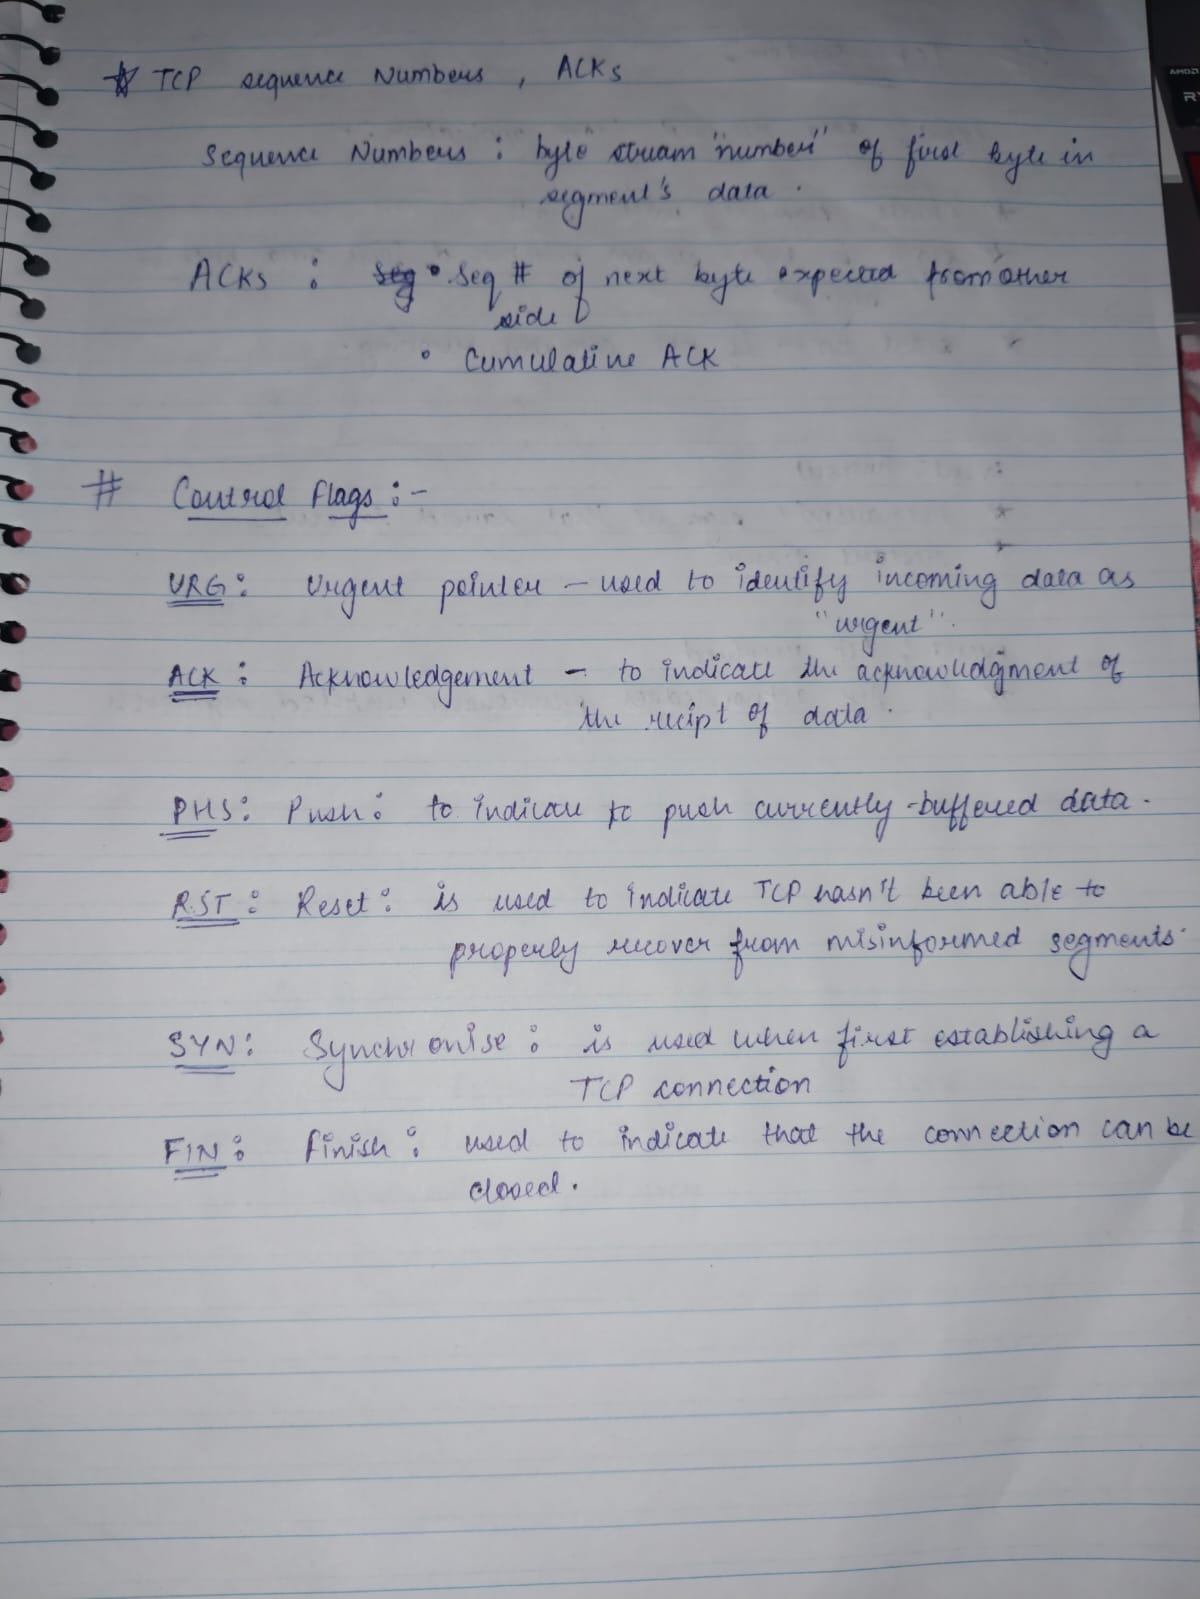 ☆ TCP sequence Numbers, ACKs
Sequence Numbers : byte stream "number" of first byte in
segment's data.
ACKs : • Seq # of next byte expected from other
side
• Cumulative ACK
# Control Flags :-
URG: Urgent pointer – used to identify incoming data as
"urgent".
ACK : Acknowledgement – to indicate the acknowledgment of
the recipt of data.
PHS: Push: to indicate to push currently-buffered data.
RST: Reset: is used to indicate TCP hasn't been able to
properly recover from misinformed segments.
SYN: Synchronise : is used when first establishing a
TCP connection
FIN: Finish : used to indicate that the connection can be
closed.
AMD